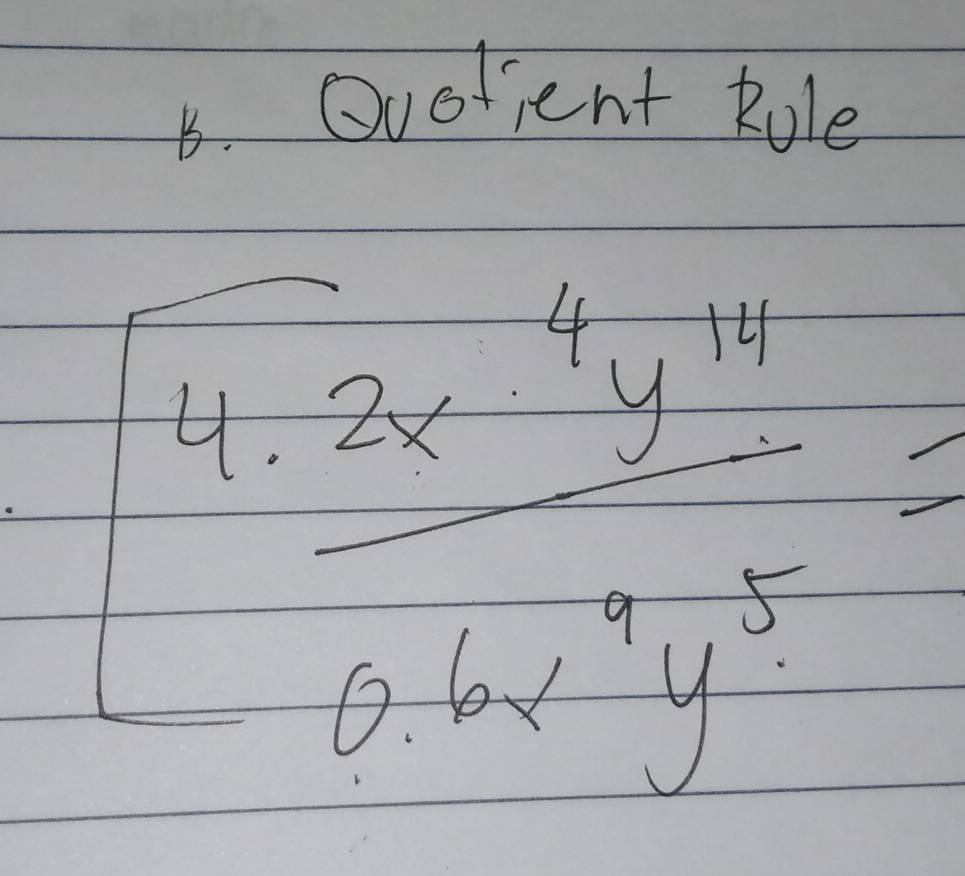 B. Quotient Rule
4.2x⁴y¹⁴ =
0.6x⁹y⁵